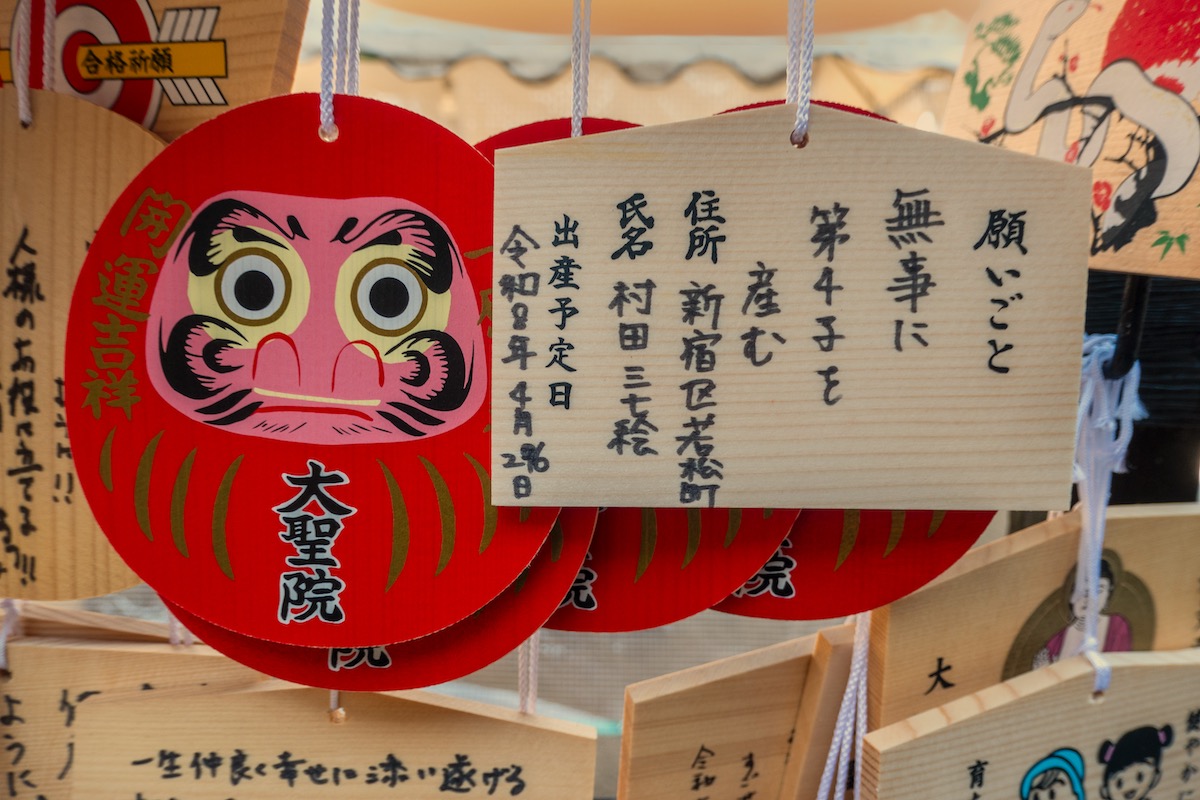 合格祈願
開運吉祥
大聖院
願いごと
無事に
第4子を
産む
住所 新宿区若松町
氏名 村田 三七絵
出産予定日
令和8年4月26日
人様のお役に立てる!!!
院
院
院
一生仲良く幸せに添い遂げる
ように
令和
大
育